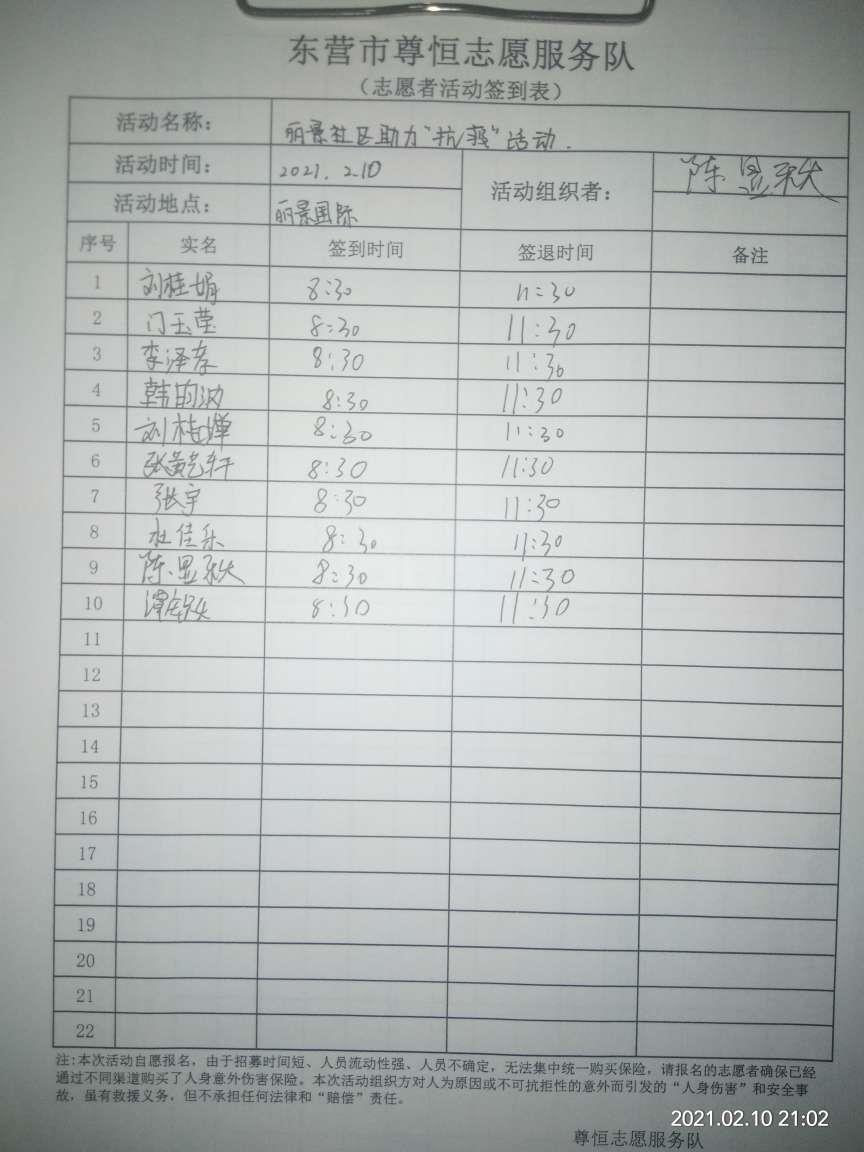 东营市尊恒志愿服务队
（志愿者活动签到表）
活动名称： 丽景社区助力“抗疫”活动.
活动时间： 2021. 2.10 活动组织者： 陈显秋
活动地点： 丽景国际
序号 实名 签到时间 签退时间 备注
1 刘桂娟 8:30 11:30
2 门玉莹 8:30 11:30
3 李泽孝 8:30 11:30
4 韩 8:30 11:30
5 刘桂 8:30 11:30
6 张黄艺轩 8:30 11:30
7 张宇 8:30 11:30
8 杜佳乐 8:30 11:30
9 陈显秋 8:30 11:30
10 8:30 11:30
11
12
13
14
15
16
17
18
19
20
21
22
注：本次活动自愿报名，由于招募时间短、人员流动性强、人员不确定，无法集中统一购买保险，请报名的志愿者确保已经
通过不同渠道购买了人身意外伤害保险。本次活动组织方对人为原因或不可抗拒性的意外而引发的“人身伤害”和安全事
故，虽有救援义务，但不承担任何法律和“赔偿”责任。
2021.02.10 21:02
尊恒志愿服务队